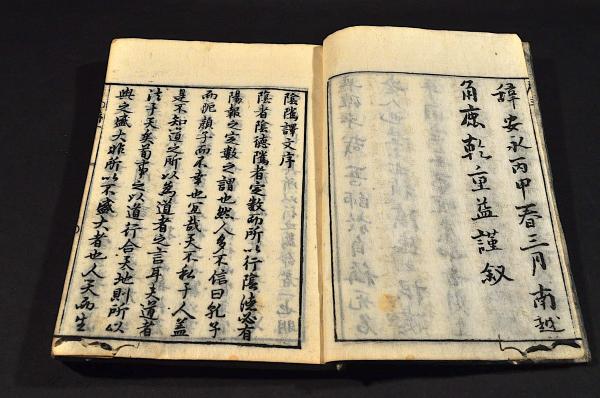 辭安永丙申春三月南越
角鹿乾重益謹叙
陰隲譯文序
陰者陰德隲者定数而所以行陰德必有
陽報之定数之謂也然人多不信曰孔子
而阨顔子而不幸也冝哉天不私于人蓋
是不知道之所以為道者之言耳夫道者
法于天矣苟事之以道行合天地則所以
與之盛大非所以不盛大者也人天而生